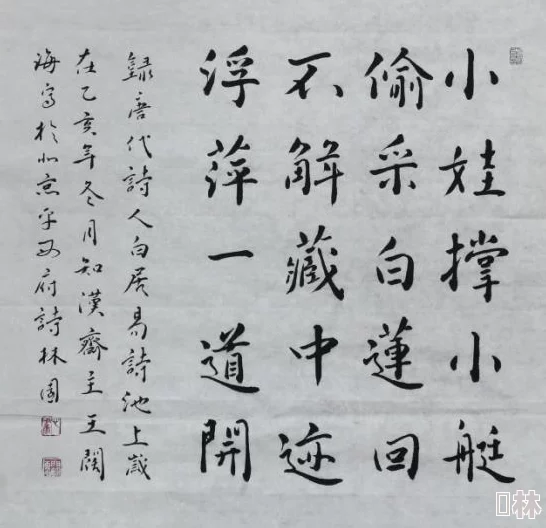 小娃撑小艇
偷采白蓮回
不解藏中迹
浮萍一道開
録唐代詩人白居易詩池上歲
在乙亥年冬月知漢齋主王闊
海寫於北京平西府詩林園
林